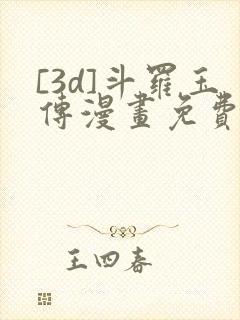 [3d]斗羅玉
傳漫畫免費
王四春